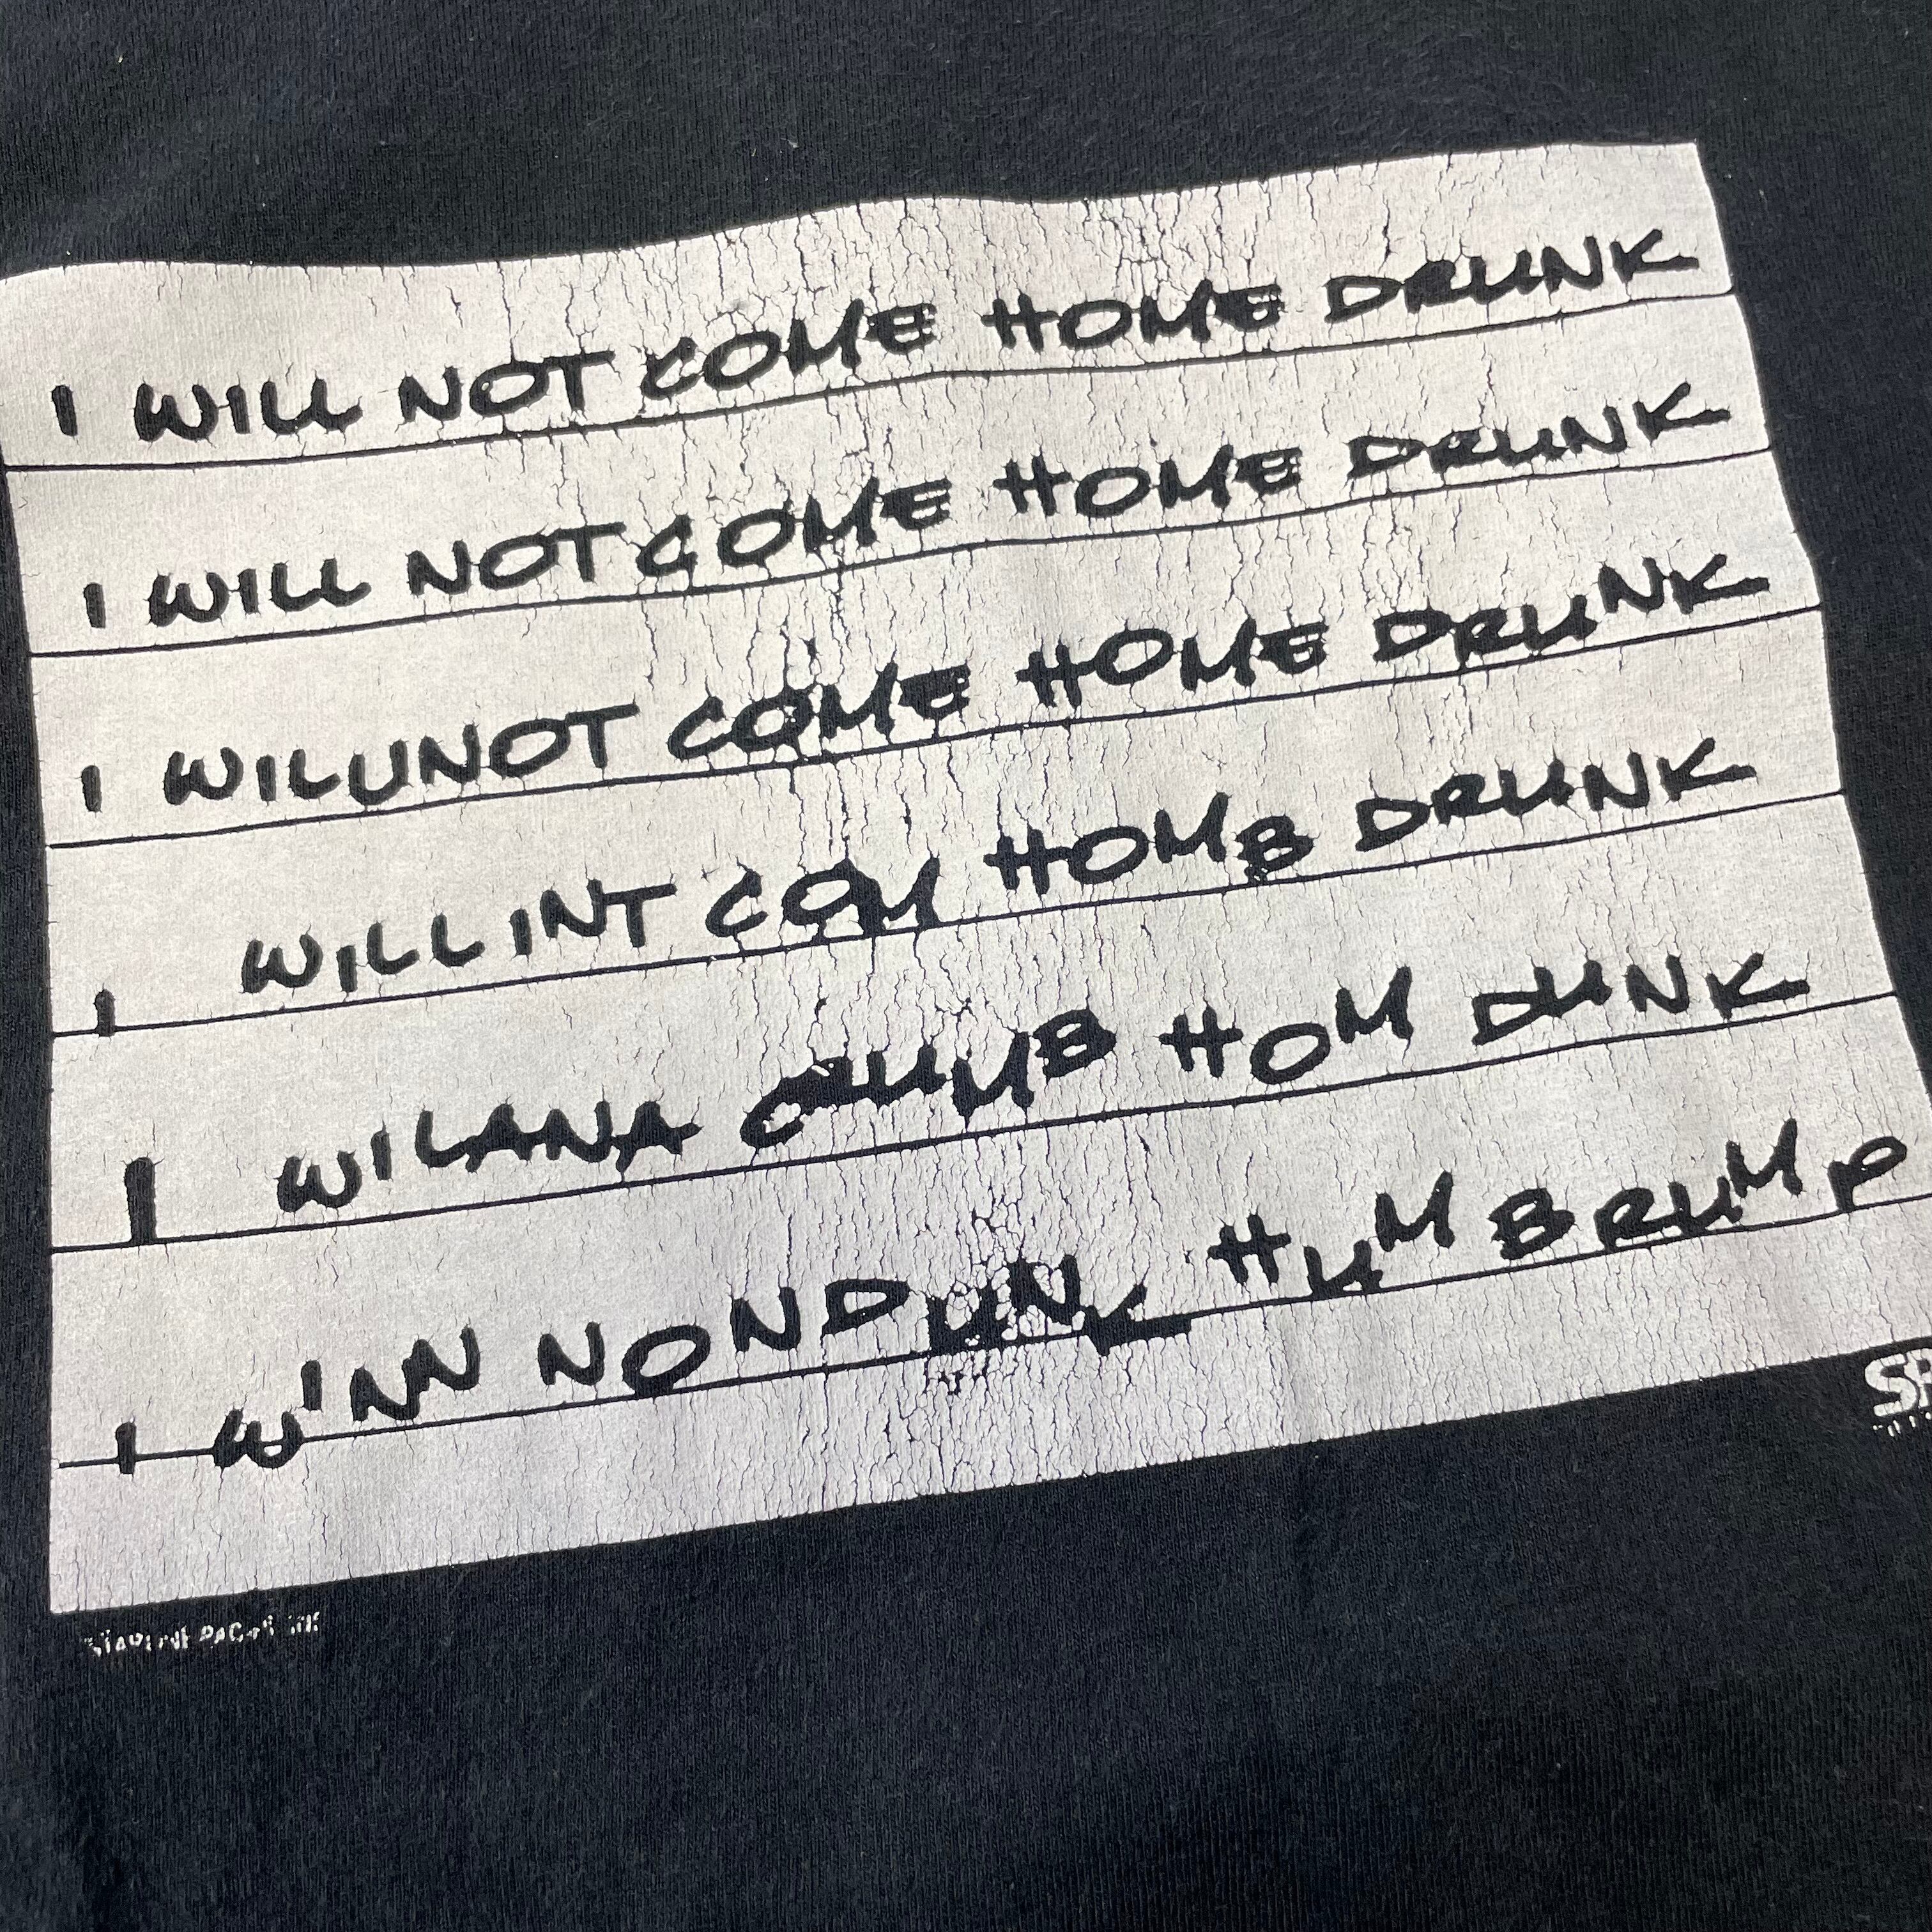 I WILL NOT COME HOME DRUNK
I WILL NOT COME HOME DRUNK
I WILUNOT COME HOME DRUNK
I WILL INT COM HOMB DRUNK
I WILANA CUUMB HOM DUNK
I WINN NONDUNK HUM BRUMP